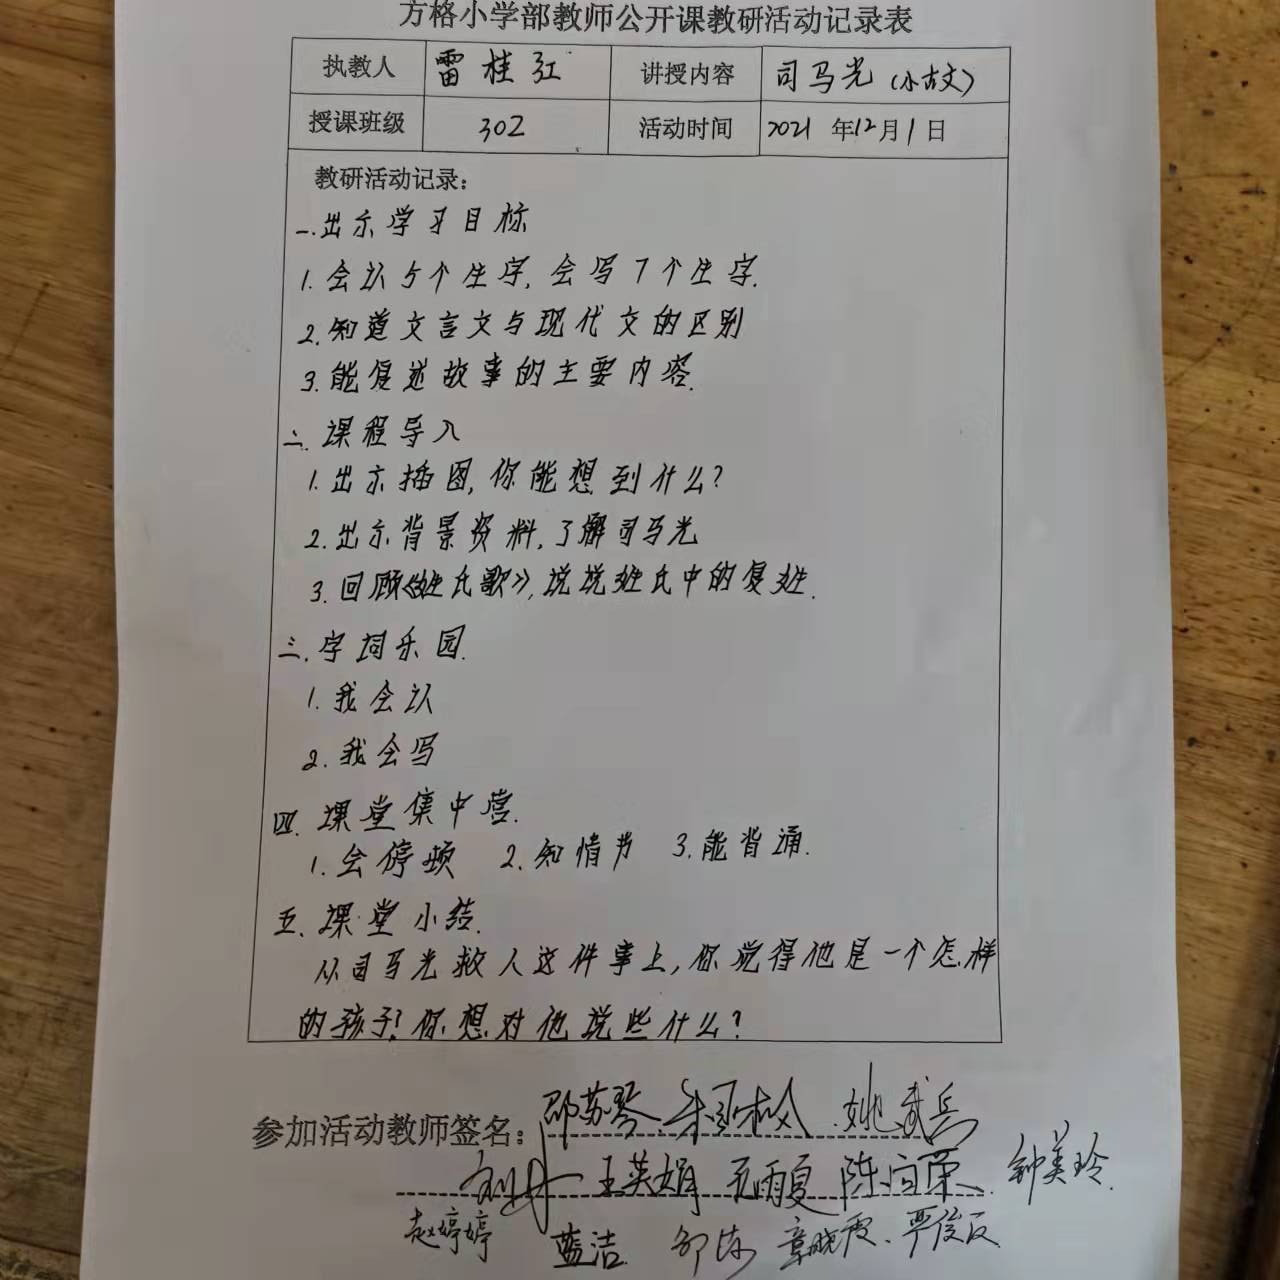 方格小学部教师公开课教研活动记录表
执教人 雷桂红 讲授内容 司马光(小古文)
授课班级 302 活动时间 2021年12月1日
教研活动记录：
一.出示学习目标
1.会认5个生字,会写7个生字.
2.知道文言文与现代文的区别
3.能复述故事的主要内容.
二.课程导入
1.出示插图,你能想到什么?
2.出示背景资料,了解司马光
3.回顾《姓氏歌》,说说姓氏中的复姓.
三.字词乐园.
1.我会认
2.我会写
四.课堂集中营.
1.会停顿 2.知情节 3.能背诵.
五.课堂小结.
从司马光救人这件事上,你觉得他是一个怎样
的孩子?你想对他说些什么?
参加活动教师签名： 邵苏琴 姚武兵
王英娟 孔雨夏 钟美玲
赵婷婷 蓝洁 章晓霞